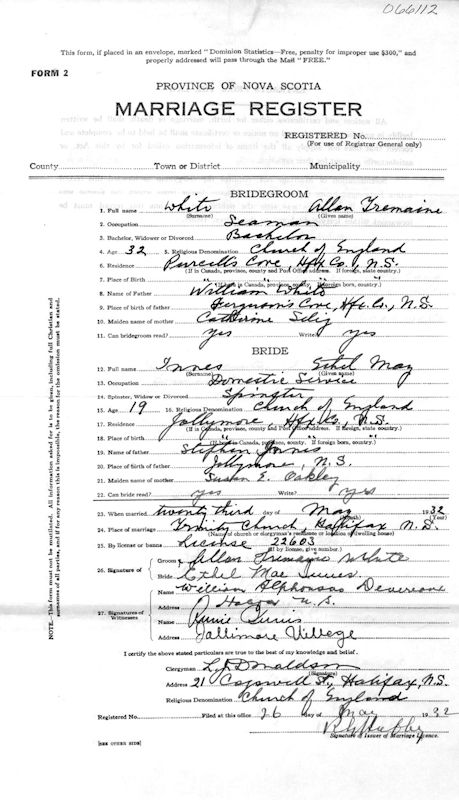 066112
This form, if placed in an envelope, marked "Dominion Statistics—Free, penalty for improper use $300," and
properly addressed will pass through the Mail "FREE."
FORM 2
PROVINCE OF NOVA SCOTIA
MARRIAGE REGISTER
REGISTERED No.
(For use of Registrar General only)
County Town or District Municipality
BRIDEGROOM
1. Full name White Allan Tremaine
(Surname) (Given name)
2. Occupation Seaman
3. Bachelor, Widower or Divorced Bachelor
4. Age 32 5. Religious Denomination Church of England
6. Residence Purcell's Cove, Hfx Co., N.S.
(If in Canada, province, county and Post Office address. If foreign, state country.)
7. Place of Birth " " " "
(If in Canada, province, county. If foreign born, country.)
8. Name of Father William White
9. Place of birth of father Ferguson's Cove, Hfx. Co., N.S.
10. Maiden name of mother Catherine Selig
11. Can bridegroom read? yes Write? yes
BRIDE
12. Full name Innes Ethel May
(Surname) (Given name)
13. Occupation Domestic Service
14. Spinster, Widow or Divorced Spinster
15. Age 19 16. Religious Denomination Church of England
17. Residence Jollymore, Hfx Co., N.S.
(If in Canada, province, county and Post Office address. If foreign, state country.)
18. Place of birth " " " "
(If in Canada, province, county. If foreign born, country.)
19. Name of father Stephen Innis
20. Place of birth of father Jollymore, N.S.
21. Maiden name of mother Susan E. Oakley
22. Can bride read? yes Write? yes
23. When married twenty third day of May 1932
(Month) (Year)
24. Place of marriage Trinity Church, Halifax N.S.
(Name of church or clergyman's residence or location of dwelling house)
25. By license or banns License 22603
(If by license, give number.)
26. Signature of Groom Allan Tremaine White
Bride Ethel Mae Innes.
27. Signatures of Witnesses
Name William Alphonsas
Address N.S.
Name Annie Innis
Address Jallimore Village
I certify the above stated particulars are true to the best of my knowledge and belief.
Clergyman L. J. Donaldson
(Signature)
Address 21 Cogswell St., Halifax, N.S.
Religious Denomination Church of England
Registered No. Filed at this office 26 day of May 1932
Signature of Issuer of Marriage Licence.
[SEE OTHER SIDE]
NOTE.—This form must not be mutilated. All information asked for is to be given, including full Christian and
surnames of all parties, and if for any reason this is impossible, the reason for the omission must be stated.